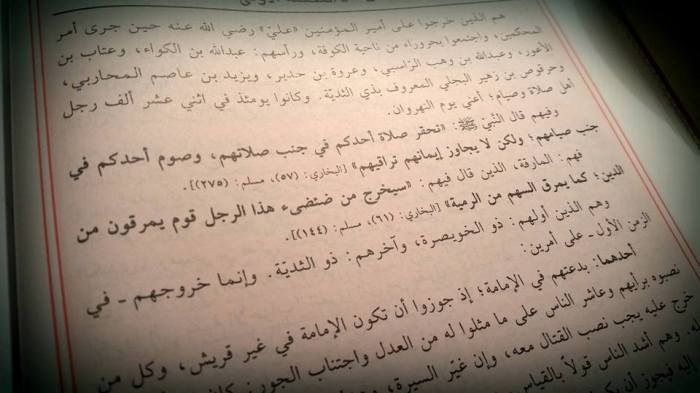 هم الذين خرجوا على أمير المؤمنين «عليّ» رضي الله عنه حين جرى أمر
المحكمين، واجتمعوا بحروراء من ناحية الكوفة، ورأسهم: عبدالله بن الكواء، وعتاب بن
الأعور، وعبدالله بن وهب الرّاسبي، وعروة بن حدير، ويزيد بن عاصم المحاربي،
وحرقوص بن زهير البجلي المعروف بذي الثديّة. وكانوا يومئذ في اثني عشر ألف رجل
أهل صلاة وصيام؛ أعني يوم النهروان.
وفيهم قال النّبيّ ﷺ: «تحقر صلاة أحدكم في جنب صلاتهم، وصوم أحدكم في
جنب صيامهم؛ ولكن لا يجاوز إيمانهم تراقيهم» [البخاري: (٥٧)، مسلم: (٢٧٥)].
فهم: المارقة، الذين قال فيهم: «سيخرج من ضئضىء هذا الرجل قوم يمرقون من
الدين؛ كما يمرق السهم من الرمية» [البخاري: (٦١)، مسلم: (١٤٤)].
وهم الذين أولهم: ذو الخويصرة، وآخرهم: ذو الثديّة. وإنما خروجهم ـ في
الزمن الأول ـ على أمرين:
أحدهما: بدعتهم في الإمامة؛ إذ جوزوا أن تكون الإمامة في غير قريش، وكل من
نصبوه برأيهم وعاشر الناس على ما مثلوا له من العدل واجتناب الجور، كان
خرج عليه يجب نصب القتال معه، وإن غيّر السيرة،
وهم أشد الناس قولاً بالقياس